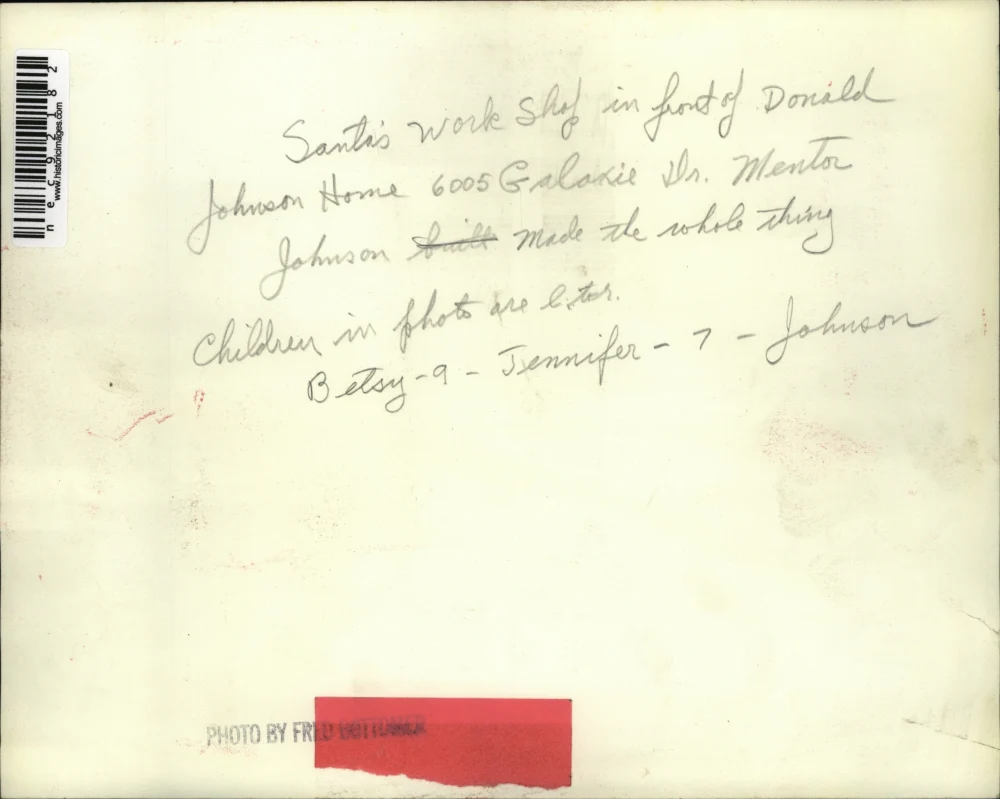 Santa's Work Shop in front of Donald
Johnson Home 6005 Galaxie Dr. Mentor
Johnson built made the whole thing
Children in photo are l. to r.
Betsy - 9 - Jennifer - 7 - Johnson
PHOTO BY FRED BOTTOMER
nec92182
www.historicimages.com